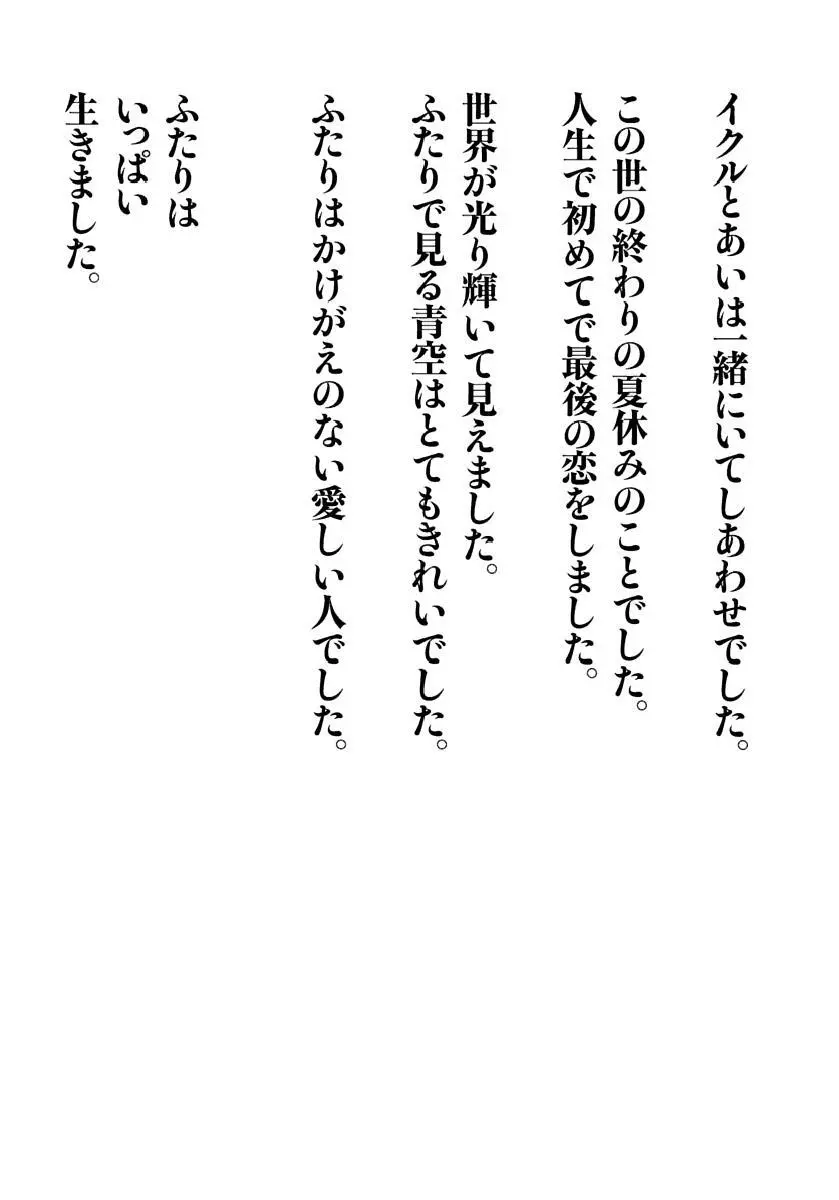 イクルとあいは一緒にいてしあわせでした。
この世の終わりの夏休みのことでした。
人生で初めてで最後の恋をしました。
世界が光り輝いて見えました。
ふたりで見る青空はとてもきれいでした。
ふたりはかけがえのない愛しい人でした。
ふたりは
いっぱい
生きました。